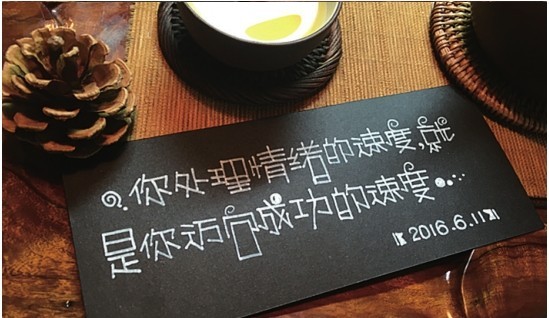 你处理情绪的速度,就
是你迈向成功的速度..
2016.6.11